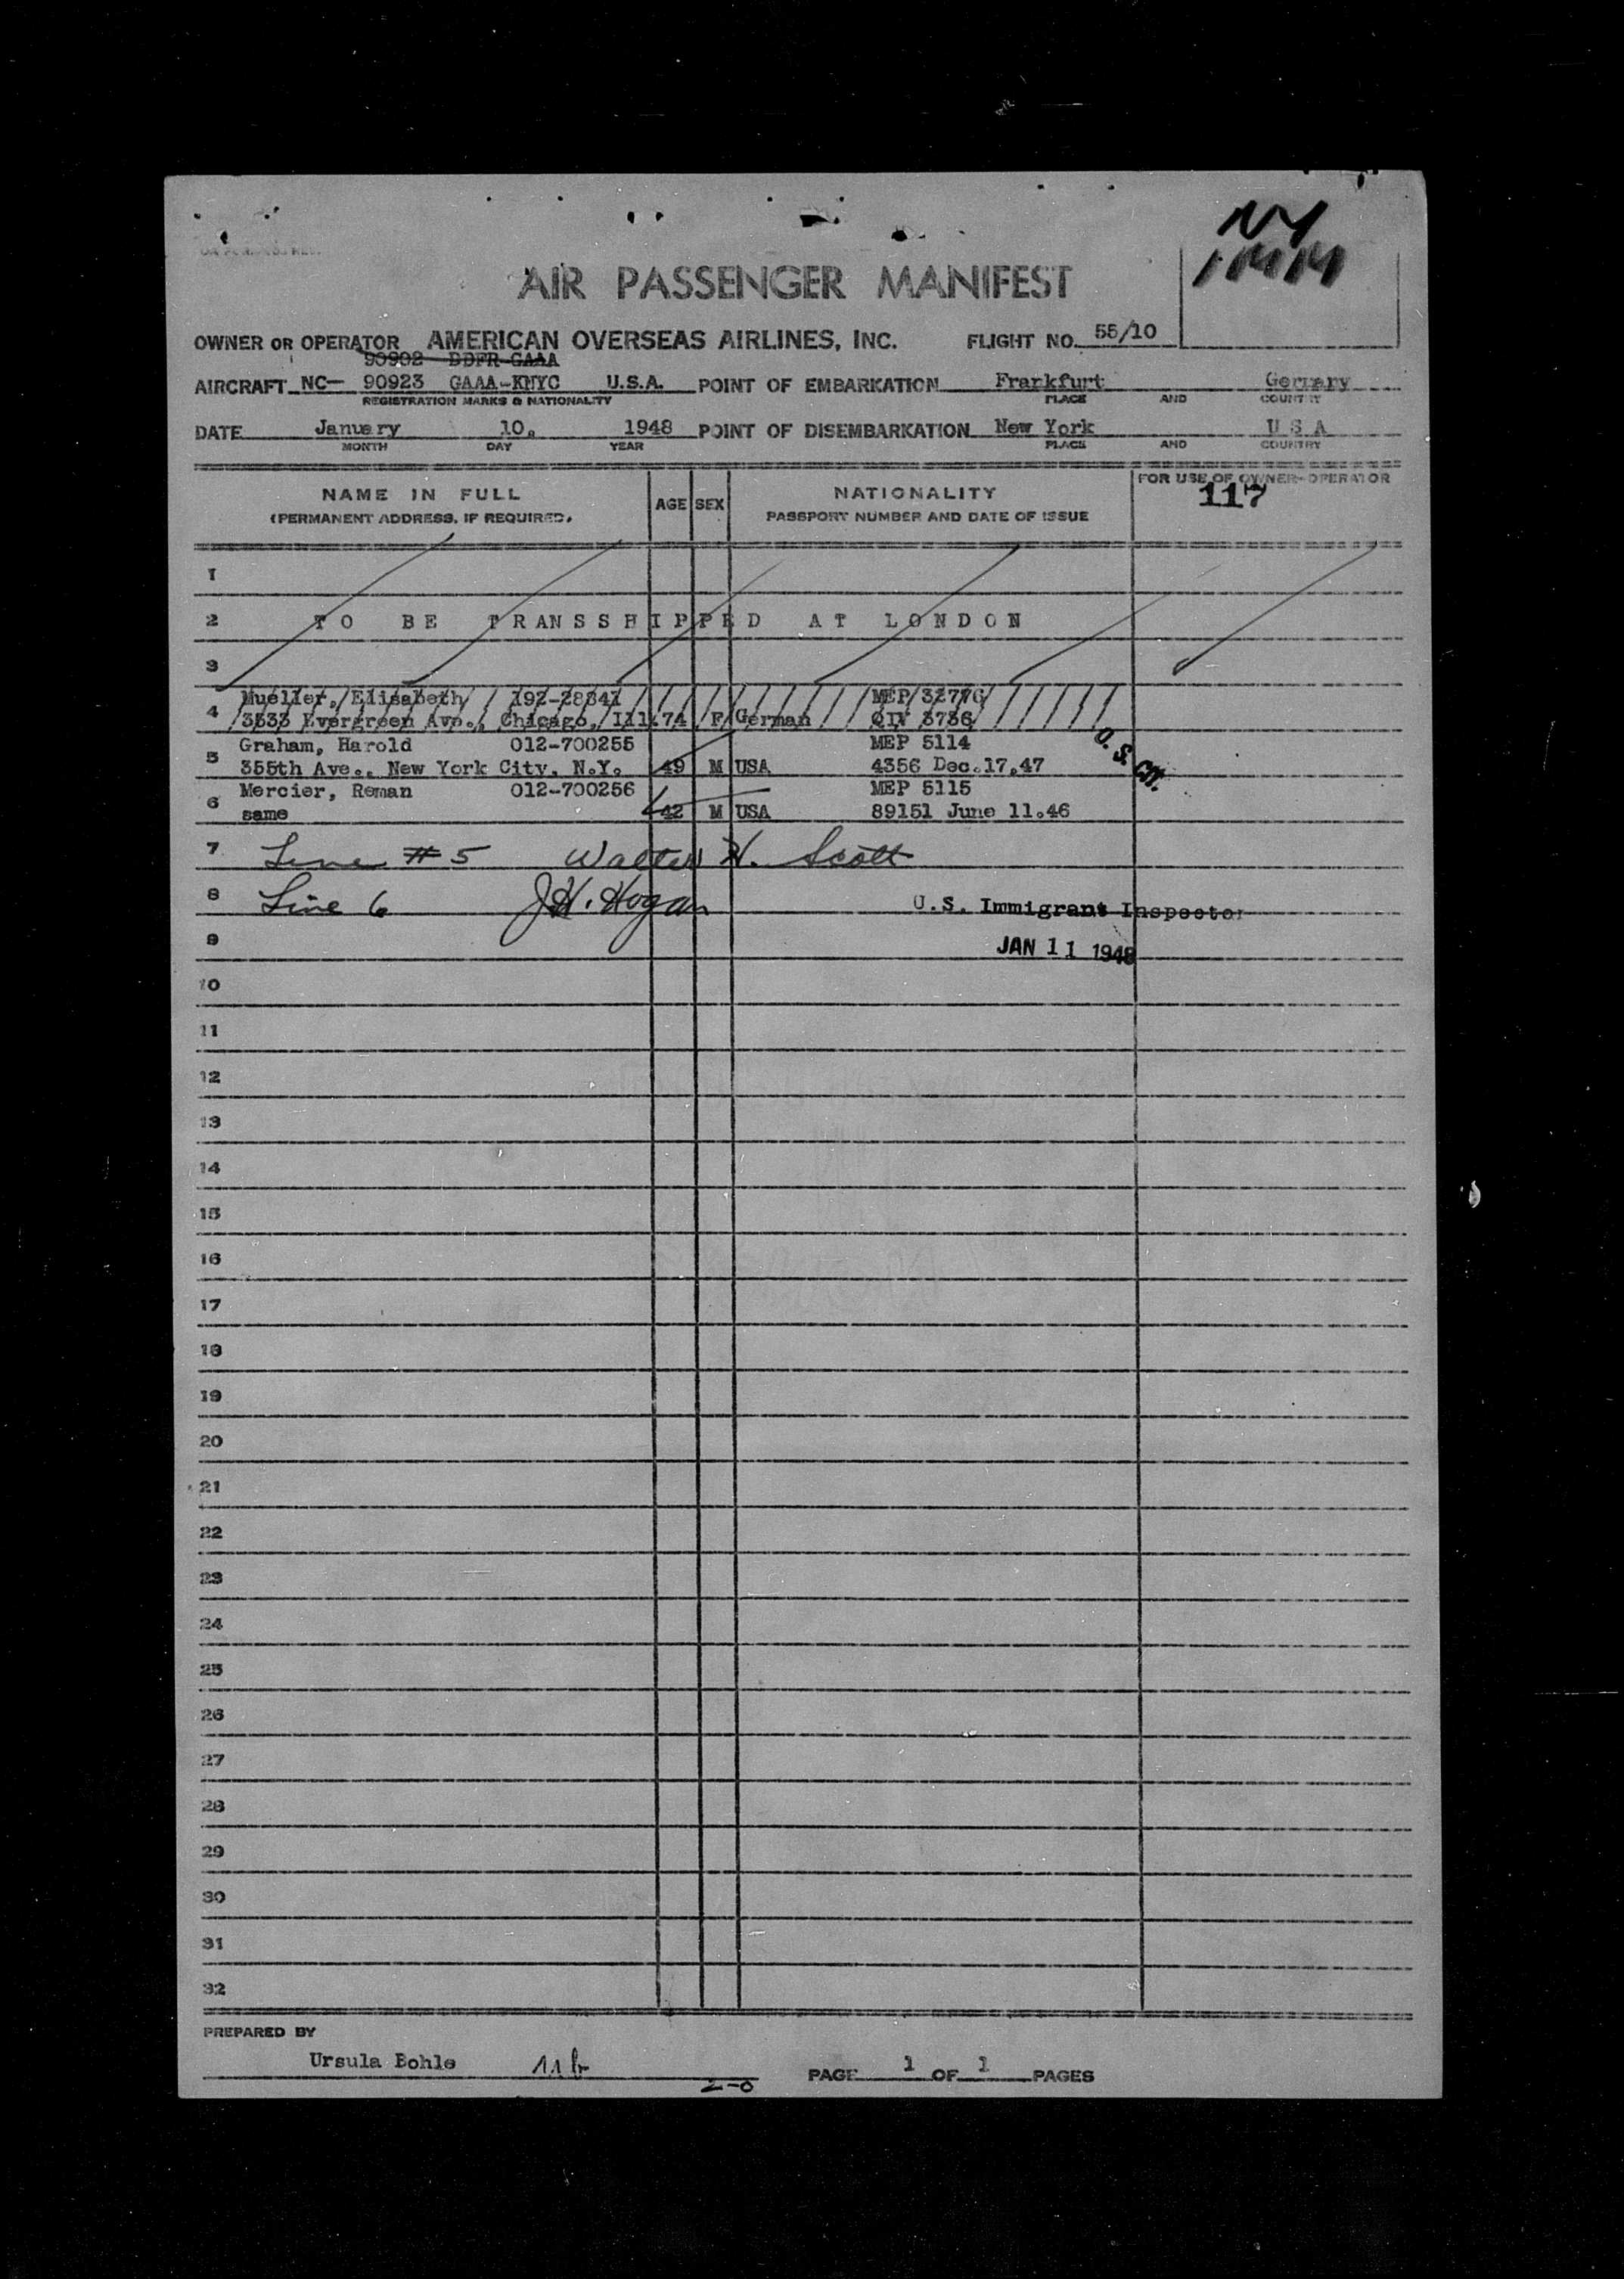 NY
IMM
AIR PASSENGER MANIFEST
OWNER OR OPERATOR AMERICAN OVERSEAS AIRLINES, INC. FLIGHT NO. 55/10
90902 DDFR-GAAA
AIRCRAFT NC- 90923 GAAA-KNYC U.S.A. POINT OF EMBARKATION Frankfurt Germany
REGISTRATION MARKS & NATIONALITY PLACE AND COUNTRY
DATE January 10. 1948 POINT OF DISEMBARKATION New York U S A
MONTH DAY YEAR PLACE AND COUNTRY
NAME IN FULL
(PERMANENT ADDRESS, IF REQUIRED)
AGE SEX
NATIONALITY
PASSPORT NUMBER AND DATE OF ISSUE
FOR USE OF OWNER-OPERATOR
117
1
2 TO BE TRANSSHIPPED AT LONDON
3
Mueller, Elisabeth 192-28341 MEP 32776
4 3533 Evergreen Ave., Chicago, Ill. 74 F German QIV 3736
Graham, Harold 012-700255 MEP 5114
5 355th Ave., New York City, N.Y. 49 M USA 4356 Dec.17.47
U. S. CIT.
Mercier, Reman 012-700256 MEP 5115
6 same 42 M USA 89151 June 11.46
7 Line # 5 Walter H. Scott
8 Line 6 J.H. Hogan U.S. Immigrant Inspector
9 JAN 11 1948
10
11
12
13
14
15
16
17
18
19
20
21
22
23
24
25
26
27
28
29
30
31
32
PREPARED BY
Ursula Bohle 11 b
2-0
PAGE 1 OF 1 PAGES